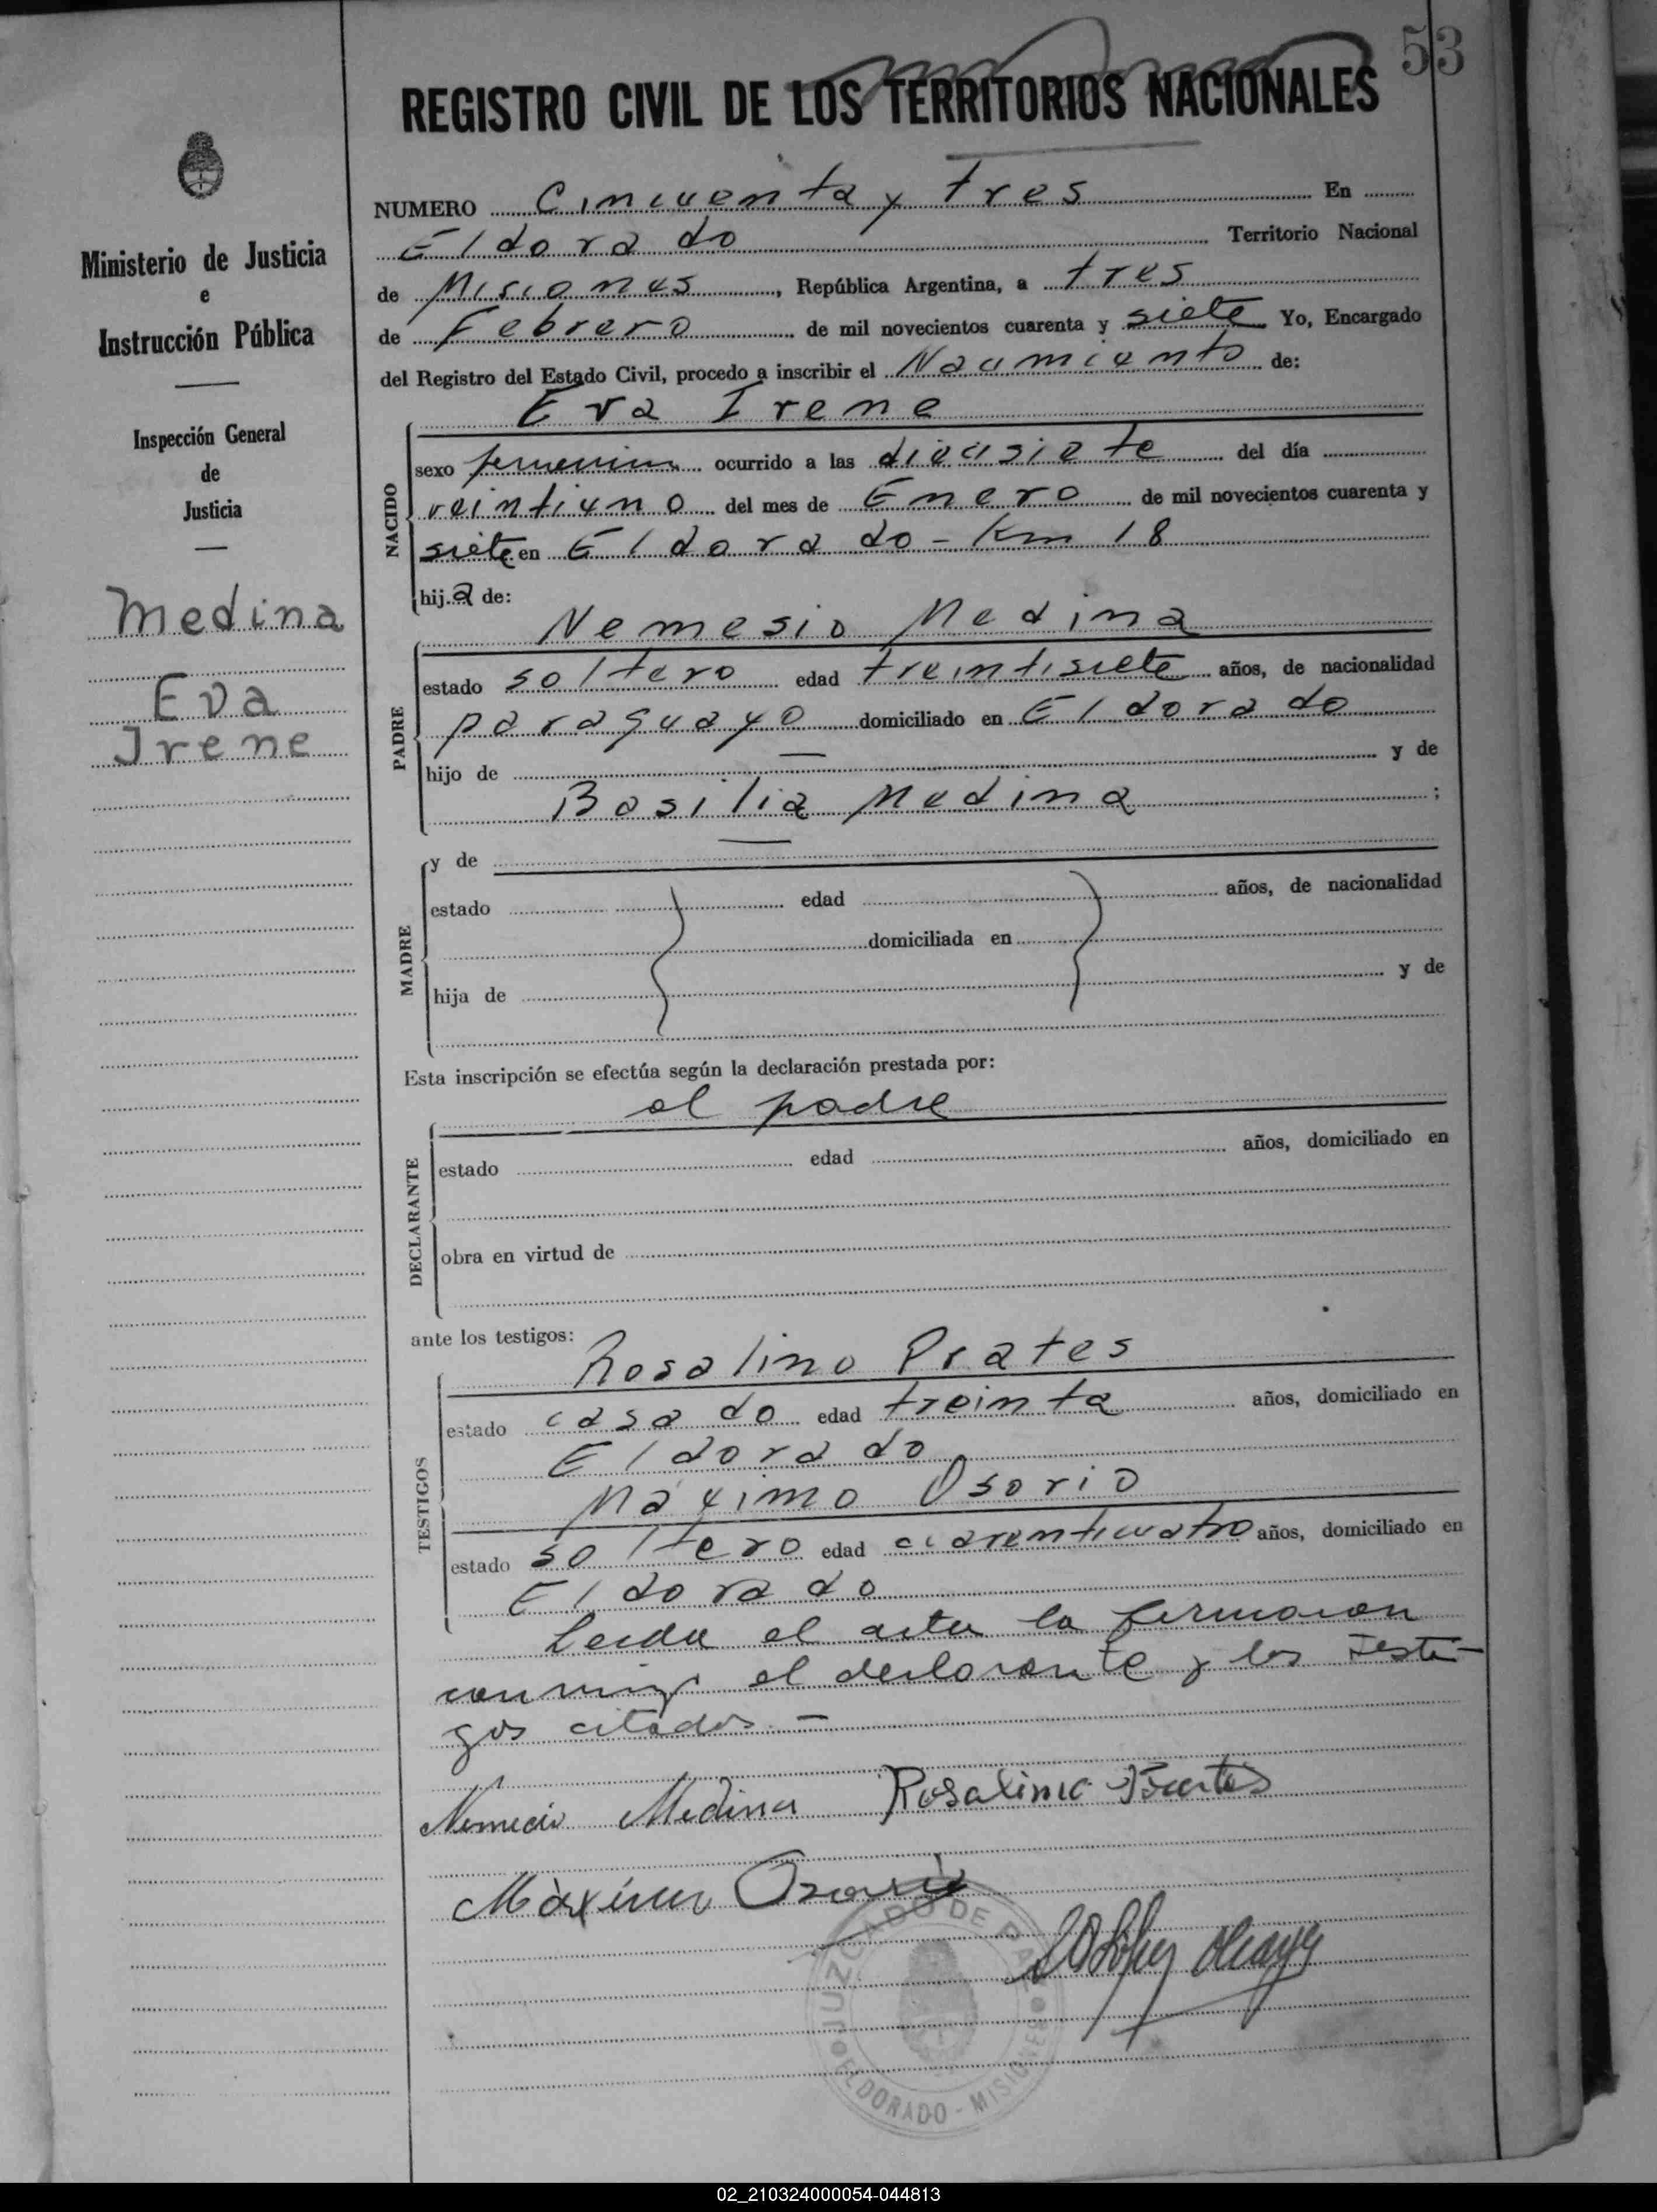 53
REGISTRO CIVIL DE LOS TERRITORIOS NACIONALES
Ministerio de Justicia
e
Instrucción Pública
Inspección General
de
Justicia
Medina
Eva
Irene
NUMERO Cincuenta y tres En
Eldorado Territorio Nacional
de Misiones, República Argentina, a tres
de Febrero de mil novecientos cuarenta y siete Yo, Encargado
del Registro del Estado Civil, procedo a inscribir el Nacimiento de:
Eva Irene
NACIDO
sexo femenino ocurrido a las diecisiete del día
veintiuno del mes de Enero de mil novecientos cuarenta y
siete en Eldorado - Km 18
hija de:
Nemesio Medina
PADRE
estado soltero edad treintisiete años, de nacionalidad
paraguayo domiciliado en Eldorado
hijo de — y de
Basilia Medina ;
MADRE
y de —
estado edad años, de nacionalidad
domiciliada en
hija de y de
Esta inscripción se efectúa según la declaración prestada por:
el padre
DECLARANTE
estado edad años, domiciliado en
obra en virtud de
ante los testigos:
Rosalino Prates
TESTIGOS
estado casado edad treinta años, domiciliado en
Eldorado
Máximo Osorio
estado soltero edad cuarenticuatro años, domiciliado en
Eldorado
Leida el acta la firmaron
conmigo el declarante y los testi-
gos citados. —
Nemecio Medina Rosalino Prates
Máximo Osorio
JUZGADO DE PAZ
ELDORADO - MISIONES
02_210324000054-044813